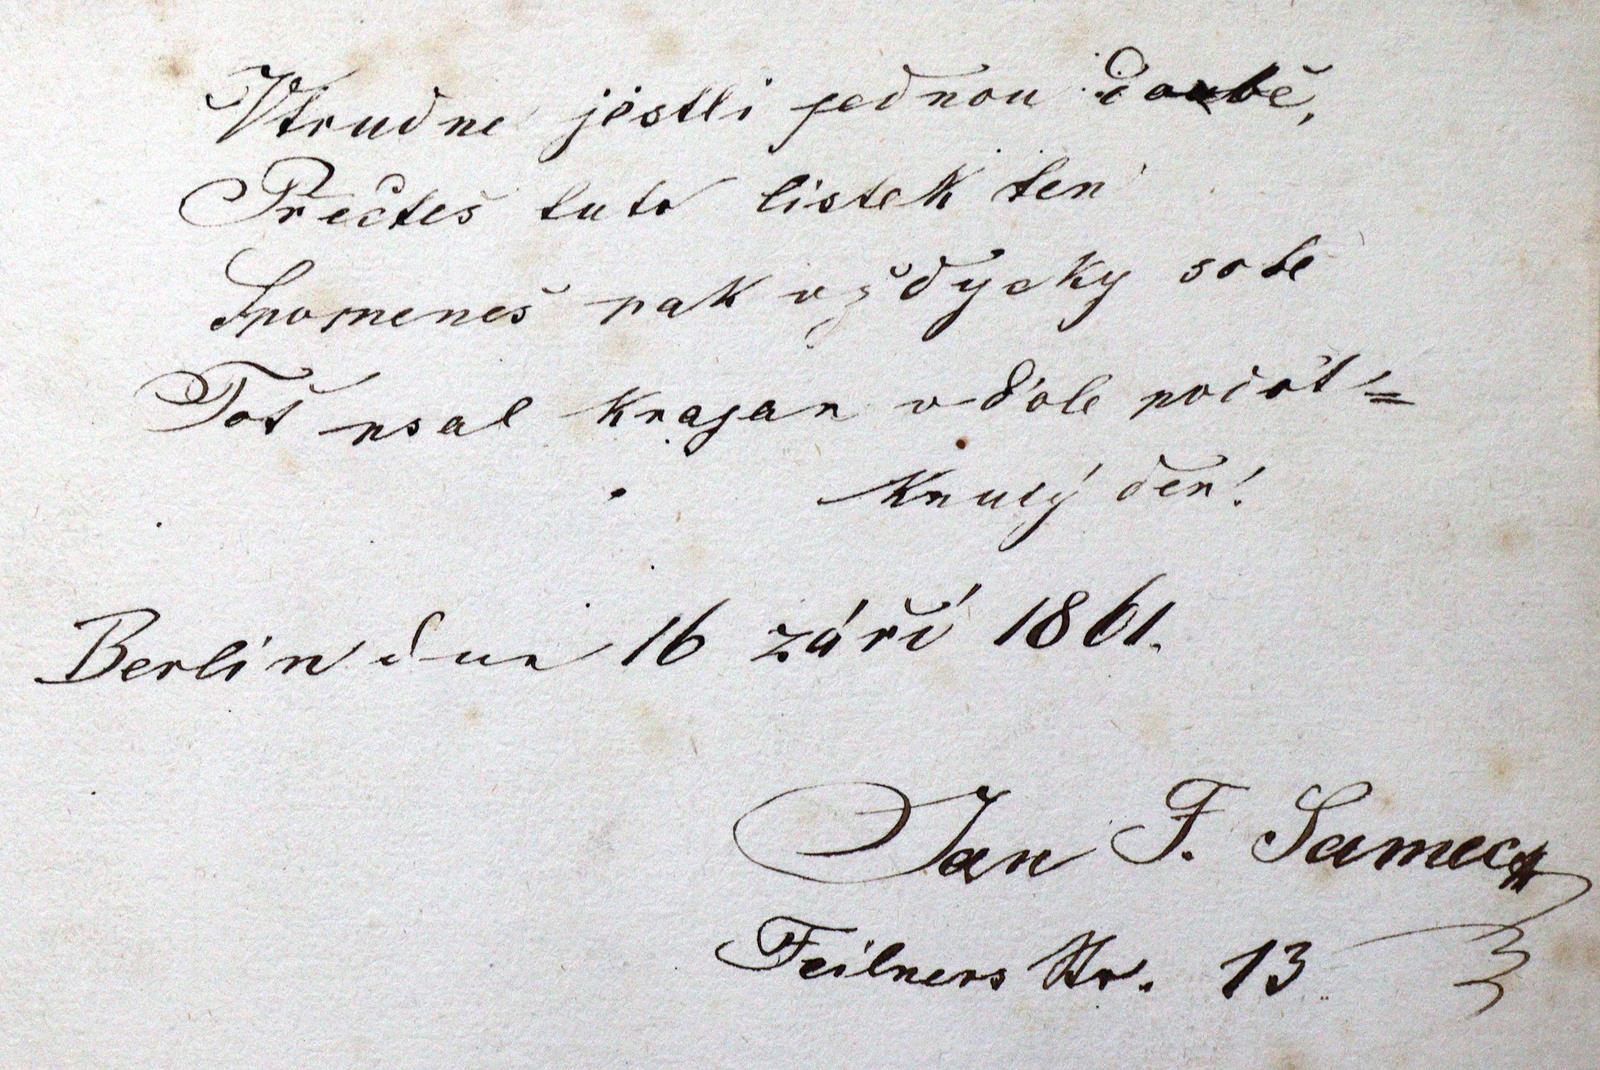 Vtrudne jestli jednou doubě,
Přečteš tuto listek ten
Spomeneš pak vždycky sobe
Toš psal Krajan v dole
Knulý den!
Berlin dne 16 září 1861.
Jan F. Samec
Feilners Str. 13